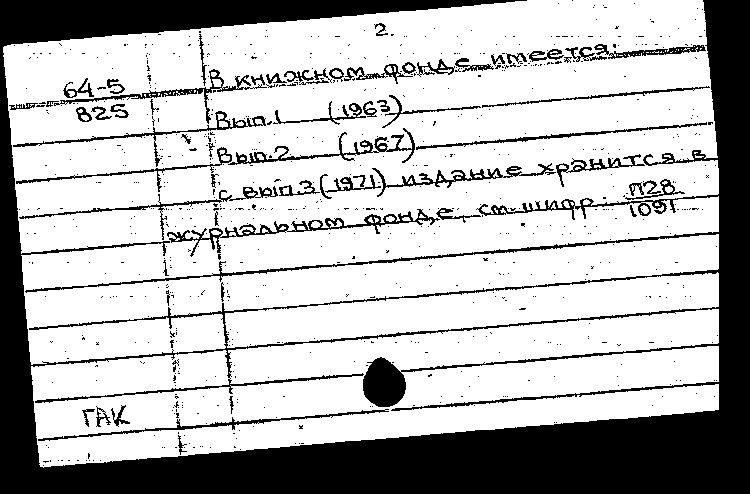 2.
64-5
825
В книжном фонде имеется:
Вып.1 (1963)
Вып.2 (1967)
с вып.3 (1971) издание хранится в
журнальном фонде, см. шифр: П28
1091
ГАК